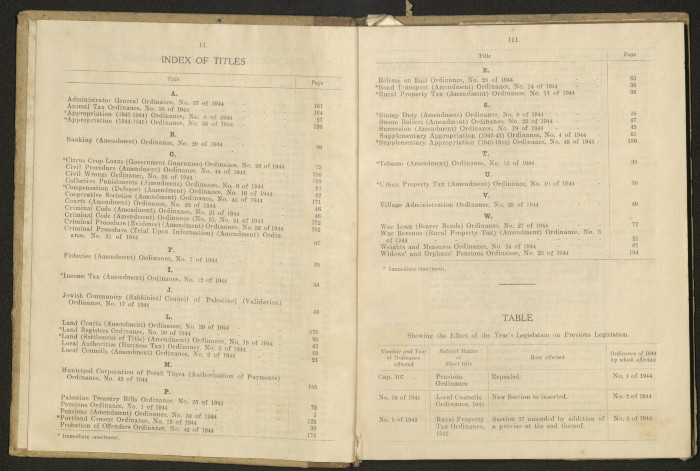 II.
INDEX OF TITLES
Title Page
A.
Administrator General Ordinance, No. 37 of 1944 151
Animal Tax Ordinance, No. 38 of 1944 164
*Appropriation (1943-1944) Ordinance, No. of 1944
*Appropriation (1944-1945) Ordinance, No. of 1944
B.
Banking (Amendment) Ordinance, No. 29 of 1944
C.
*Citrus Crop Loans (Government Guarantee) Ordinance, No. of 1944 75
Civil Procedure (Amendment) Ordinance, No. 44 of 1944
Civil Wrongs Ordinance, No. 36 of 1944
Collective Punishments (Amendment) Ordinance, No. 6 of 1944
*Compensation (Defence) (Amendment) Ordinance, No. 16 of 1944
Cooperative Societies (Amendment) Ordinance, No. 40 of 1944
Courts (Amendment) Ordinance, No. of 1944 171
Criminal Code (Amendment) Ordinance, No. 21 of 1944 46
Criminal Code (Amendment) Ordinance (No. 2), No. 41 of 1944
Criminal Procedure (Evidence) (Amendment) Ordinance, No. of 1944
Criminal Procedure (Trial Upon Information) (Amendment) Ordin-
ance, No. 31 of 1944
F.
Fisheries (Amendment) Ordinance, No. 7 of 1944
I.
*Income Tax (Amendment) Ordinance, No. 12 of 1944 34
J.
Jewish Community (Rabbinical Council of Palestine) (Validation)
Ordinance, No. 17 of 1944 43
L.
Land Courts (Amendment) Ordinance, No. 39 of 1944
*Land Registers Ordinance, No. 30 of 1944
*Land (Settlement of Title) (Amendment) Ordinance, No. 18 of 1944
Local Authorities (Business Tax) Ordinance, No. of 1944
Local Councils (Amendment) Ordinance, No. 2 of 1944 21
M.
Municipal Corporation of Petah Tiqva (Authorisation of Payments)
Ordinance, No. 43 of 1944 185
P.
Palestine Treasury Bills Ordinance, No. 25 of 1944
Pensions Ordinance, No. 1 of 1944
Pensions (Amendment) Ordinance, No. 34 of 1944
*Portland Cement Ordinance, No. of 1944
Probation of Offenders Ordinance, No. 42 of 1944
* Immediate enactment.
III.
Title Page
R.
Release on Bail Ordinance, No. 25 of 1944 63
*Road Transport (Amendment) Ordinance, No. 14 of 1944
*Rural Property Tax (Amendment) Ordinance, No. 11 of 1944
S.
*Stamp Duty (Amendment) Ordinance, No. 8 of 1944
Steam Boilers (Amendment) Ordinance, No. 22 of 1944 47
Succession (Amendment) Ordinance, No. 19 of 1944 45
Supplementary Appropriation (1942-43) Ordinance, No. 4 of 1944
*Supplementary Appropriation (1943-1944) Ordinance, No. 45 of 1944 186
T.
*Tobacco (Amendment) Ordinance, No. 13 of 1944
U.
*Urban Property Tax (Amendment) Ordinance, No. 10 of 1944
V.
Village Administration Ordinance, No. 23 of 1944 49
W.
War Loan (Bearer Bonds) Ordinance, No. 27 of 1944 77
War Revenue (Rural Property Tax) (Amendment) Ordinance, No. 3
of 1944
Weights and Measures Ordinance, No. 24 of 1944 61
Widows' and Orphans' Pensions Ordinance, No. of 1944 104
* Immediate enactment.
TABLE
Showing the Effect of the Year's Legislation on Previous Legislation.
Number and Year of Ordinance affected Subject Matter or Short title How affected Ordinance of 1944 by which affected
Cap. 107 Pensions Ordinance Repealed. No. 1 of 1944
No. of 1941 Local Councils Ordinance, 1941 New Section inserted. No. 2 of 1944
No. 5 of 1942 Rural Property Tax Ordinance, 1942 Section amended by addition of a proviso at the end thereof. No. 3 of 1944